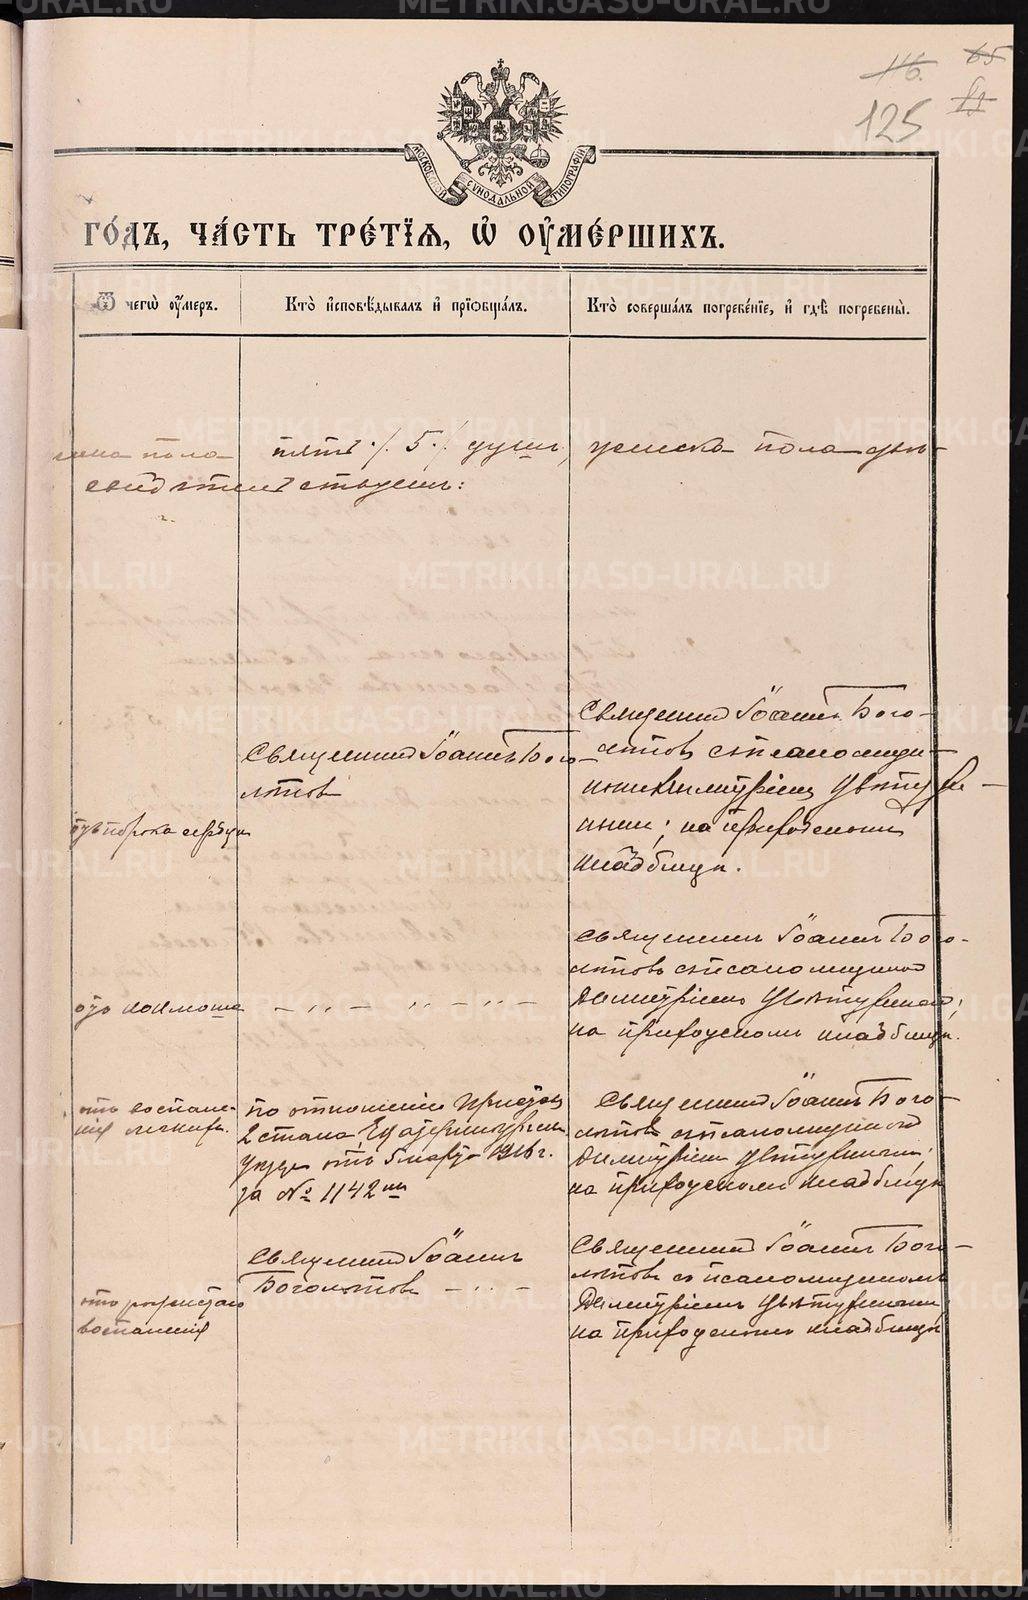 116.
65
125
МОСКОВСКОЙ СѴНОДАЛЬНОЙ ТИПОГРАФІИ
ГО́ДЪ, ЧА́СТЬ ТРЕ́ТІЯ, Ѡ҆ ОУ҆МЕ́РШИХЪ.
Ѿ чегѡ̀ оу҆́меръ.
Кто̀ и҆сповѣ́дывалъ и҆ прїѡбща́лъ.
Кто̀ соверша́лъ погребе́нїе, и҆ гдѣ̀ погребены̀.
пола пять /. 5. / душъ, женска пола
свидѣтельствуемъ:
отъ порока сердца
Священникъ Іоаннъ Бого-
лѣповъ
Священникъ Іоаннъ Бого-
лѣповъ съ псаломщи-
комъ Димитріемъ
; на приходскомъ
кладбищѣ.
отъ коклюша
— ,, — ,, — ,, —
Священникъ Іоаннъ Бого-
лѣповъ съ псаломщикомъ
Димитріемъ
на приходскомъ кладбищѣ.
отъ воспале-
нія легкихъ.
по отношенію Пристава
2 стана Екатеринбургскаго
уѣзда отъ 5 марта 1916 г.
за № 1142мъ
Священникъ Іоаннъ Бого-
лѣповъ съ псаломщикомъ
Димитріемъ
на приходскомъ кладбищѣ
отъ
воспаленія
Священникъ Іоаннъ
Боголѣповъ — ,, —
Священникъ Іоаннъ Бого-
лѣповъ съ псаломщикомъ
Димитріемъ
на приходскомъ кладбищѣ
METRIKI.GASO-URAL.RU